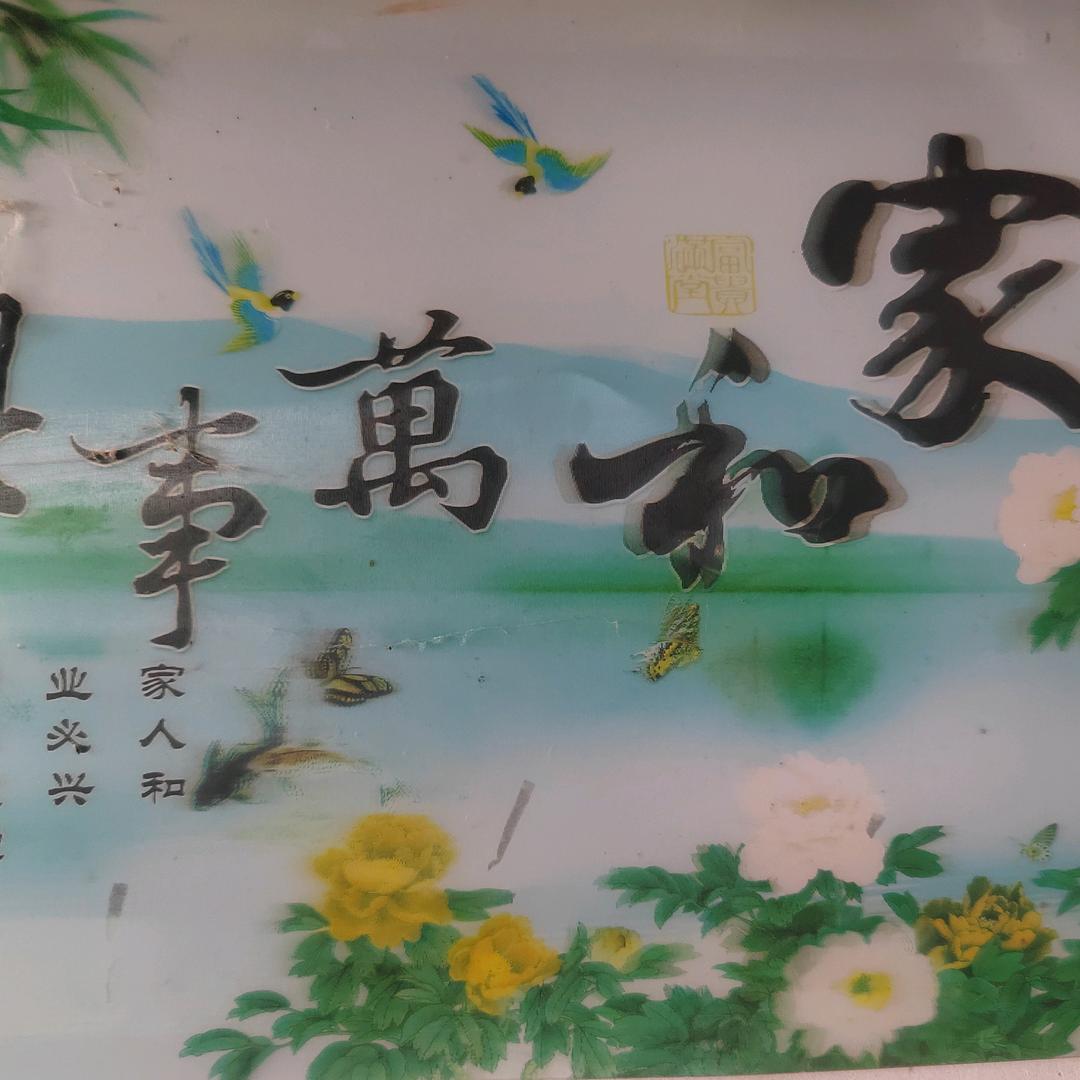 家和萬事
富貴滿堂
家人和
业必兴